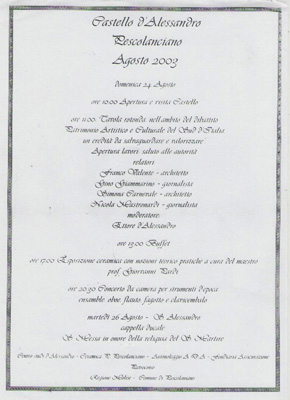 Castello d'Alessandro
Pescolanciano
Agosto 2003
domenica 24 Agosto
ore 10.00 Apertura e visita Castello
ore 11.00 Tavola rotonda nell'ambito del dibattito
Patrimonio Artistico e Culturale del Sud d'Italia
un eredità da salvaguardare e valorizzare"
Apertura lavori: saluto alle autorità
relatori
Franco Valente - architetto
Gino Giammarino - giornalista
Simona Carnevale - architetto
Nicola Mastronardi - giornalista
moderatore:
Ettore d'Alessandro
ore 13.00 Buffet
ore 17.00 Esposizione ceramica con nozioni teorico pratiche a cura del maestro
prof. Giovanni Pardi
ore 20.30 Concerto da camera per strumenti d'epoca
ensamble: oboe, flauto, fagotto e clavicembalo
martedì 26 Agosto - S. Alessandro
cappella ducale
S. Messa in onore della reliquia del S. Martire
Centro studi d'Alessandro - Ceramica P. Pescolanciano - A.D.A. - Fondiaria Assicurazione
Patrocinio
Regione Molise - Comune di Pescolanciano